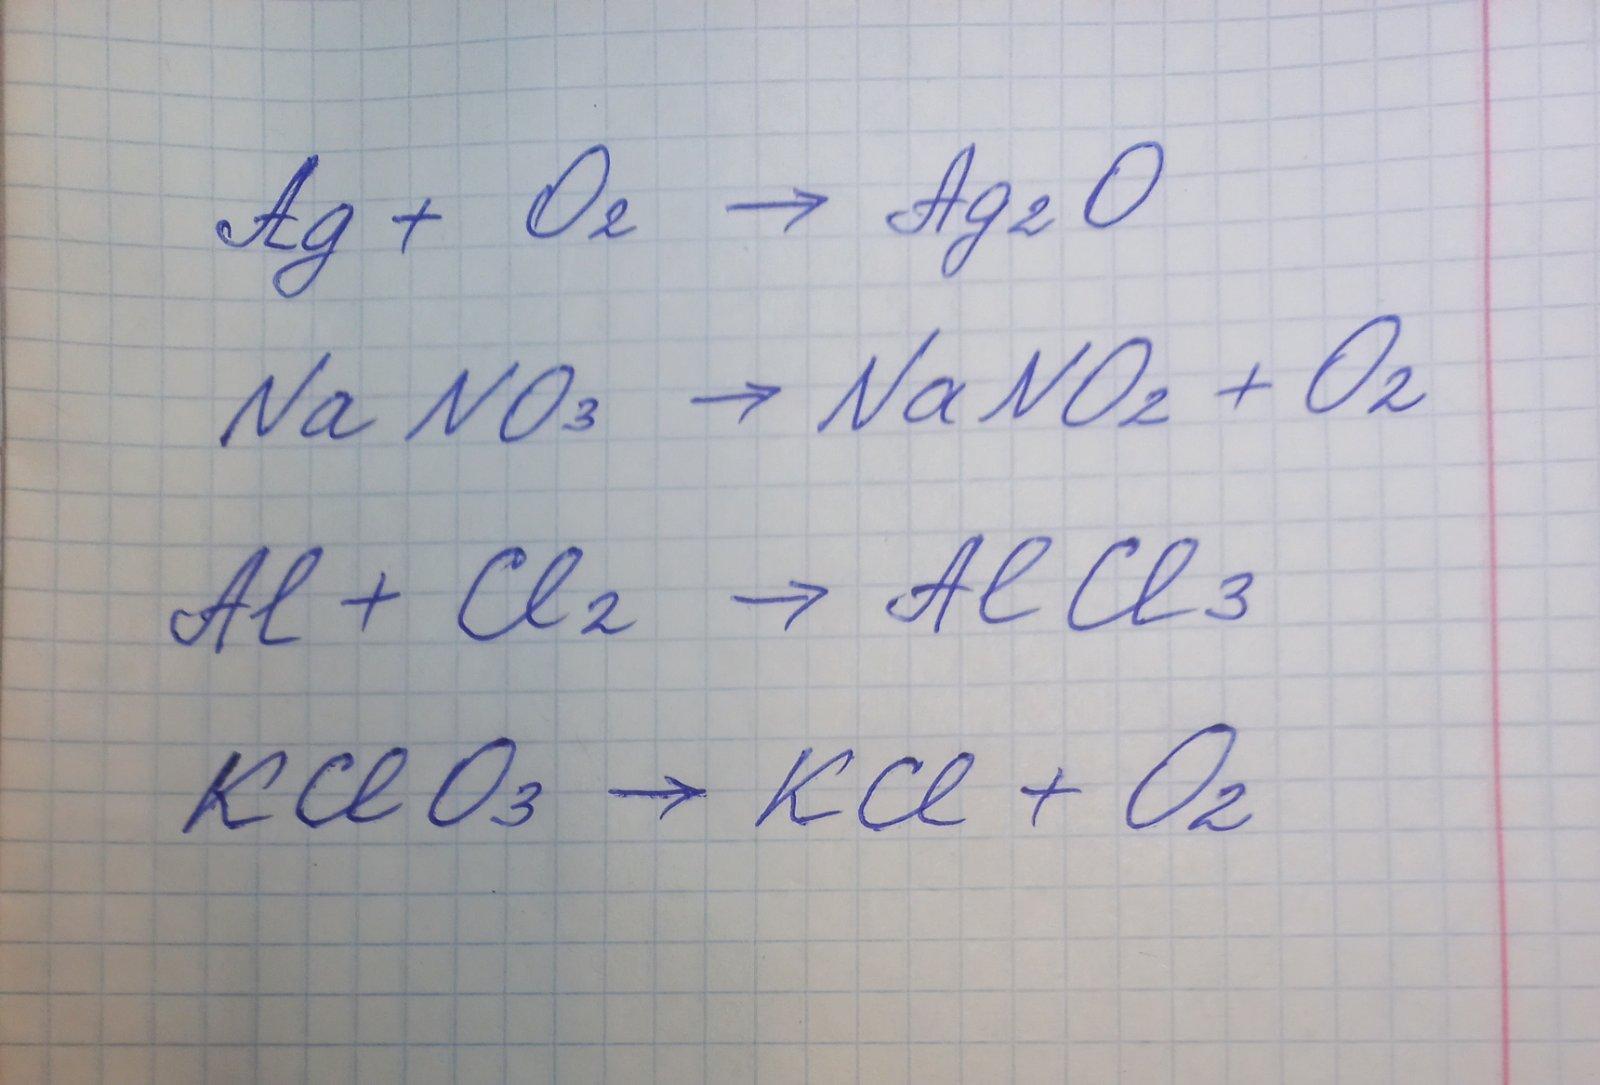 Ag + O₂ → Ag₂O
NaNO₃ → NaNO₂ + O₂
Al + Cl₂ → AlCl₃
KClO₃ → KCl + O₂